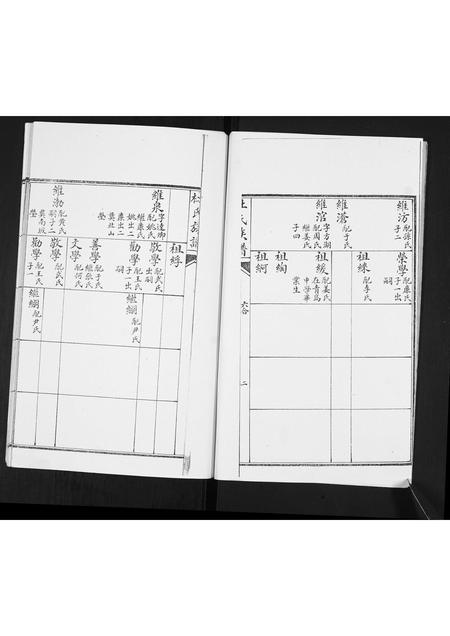 維汸
配孫氏
子二
維蒼
配于氏
維涫
字方湖
配周氏
繼姜氏
子四
榮學
配康氏
子一出
嗣
祖綀
配李氏
祖緩
配姜氏
在青島
中學畢
業生
祖絢
祖綱
杜氏族譜
六合
二
杜氏族譜
維泉
字逵卿
配姚氏
繼康氏
姚出二
康出二
葬北山
塋
維渤
配黃氏
嗣子二
葬南坡
塋
祖綒
敬學
配武氏
出嗣
勸學
配王氏
子一出
嗣
善學
配于氏
繼張氏
文學
配何氏
敬學
配武氏
勸學
配王氏
子一
繼綱
配尹氏
繼綱
配尹氏